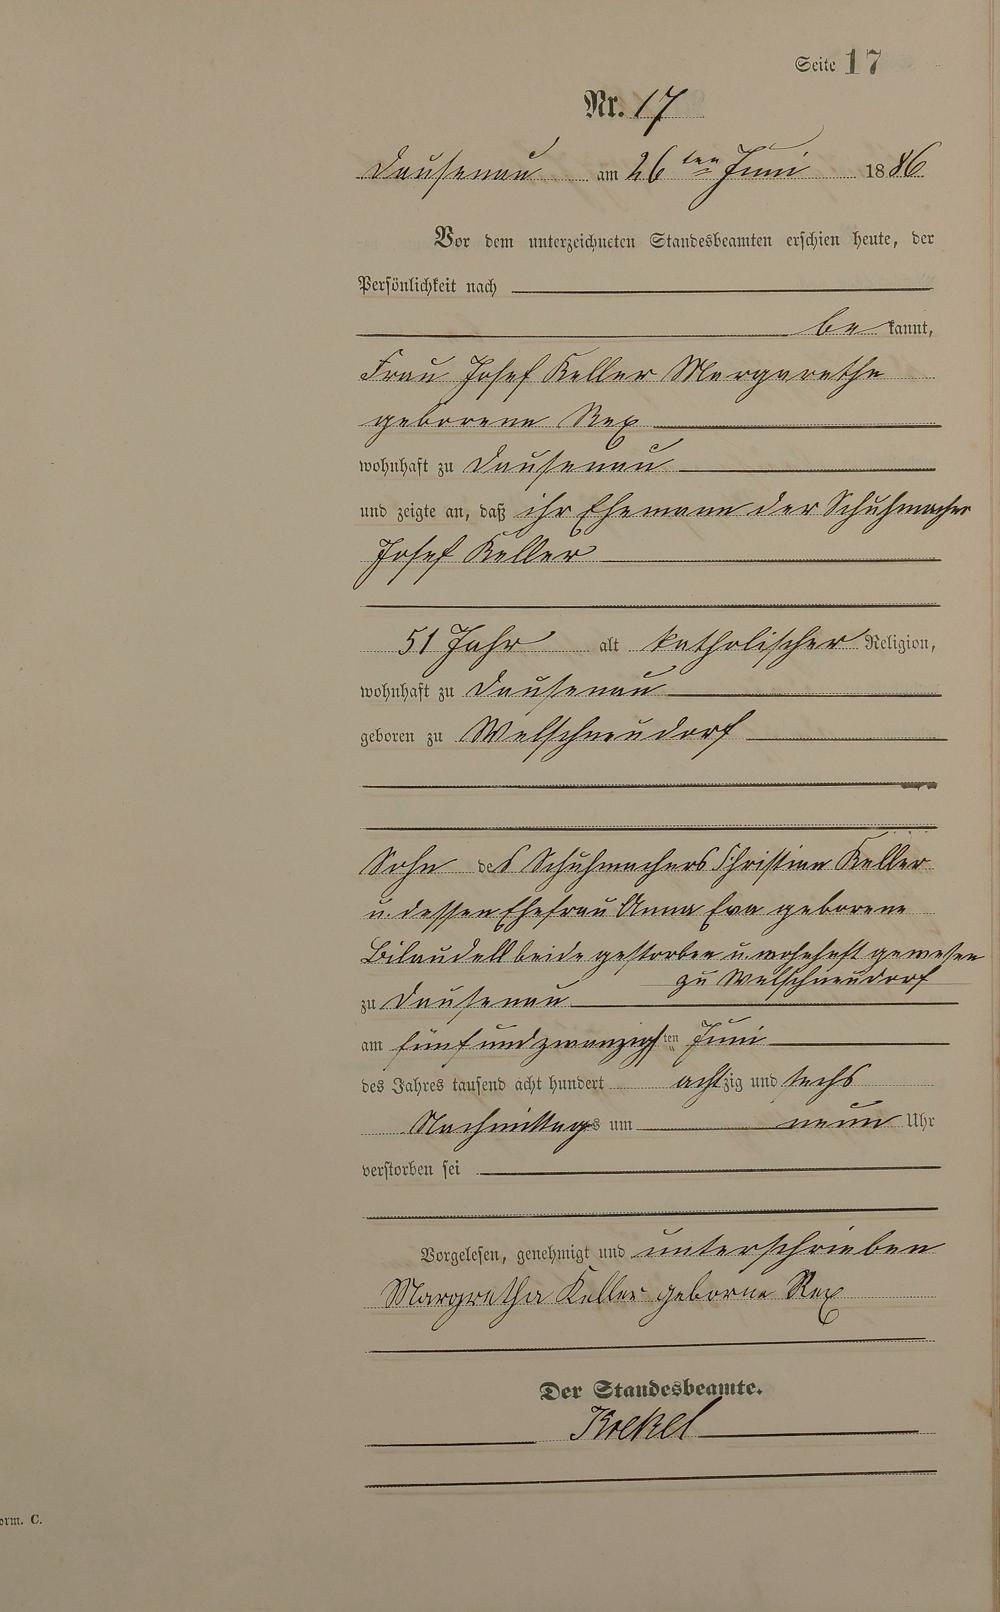 Seite 17
Nr. 17
Dausenau am 26ten Juni 1886
Vor dem unterzeichneten Standesbeamten erschien heute, der
Persönlichkeit nach
bekannt,
Frau Josef Keller Margarethe
geborene Rex
wohnhaft zu Dausenau
und zeigte an, daß ihr Ehemann der Schuhmacher
Josef Keller
51 Jahr alt katholischer Religion,
wohnhaft zu Dausenau
geboren zu Welschneudorf
Sohn des Schuhmachers Christian Keller
u. dessen Ehefrau Anna Eva geborene
Bilaudell beide gestorben u. wohnhaft gewesen
zu Welschneudorf
zu Dausenau
am fünfundzwanzigsten Juni
des Jahres tausend acht hundert achtzig und sechs
Nachmittags um neun Uhr
verstorben sei
Vorgelesen, genehmigt und unterschrieben
Margretha Keller geborne Rex
Der Standesbeamte.
orm. C.